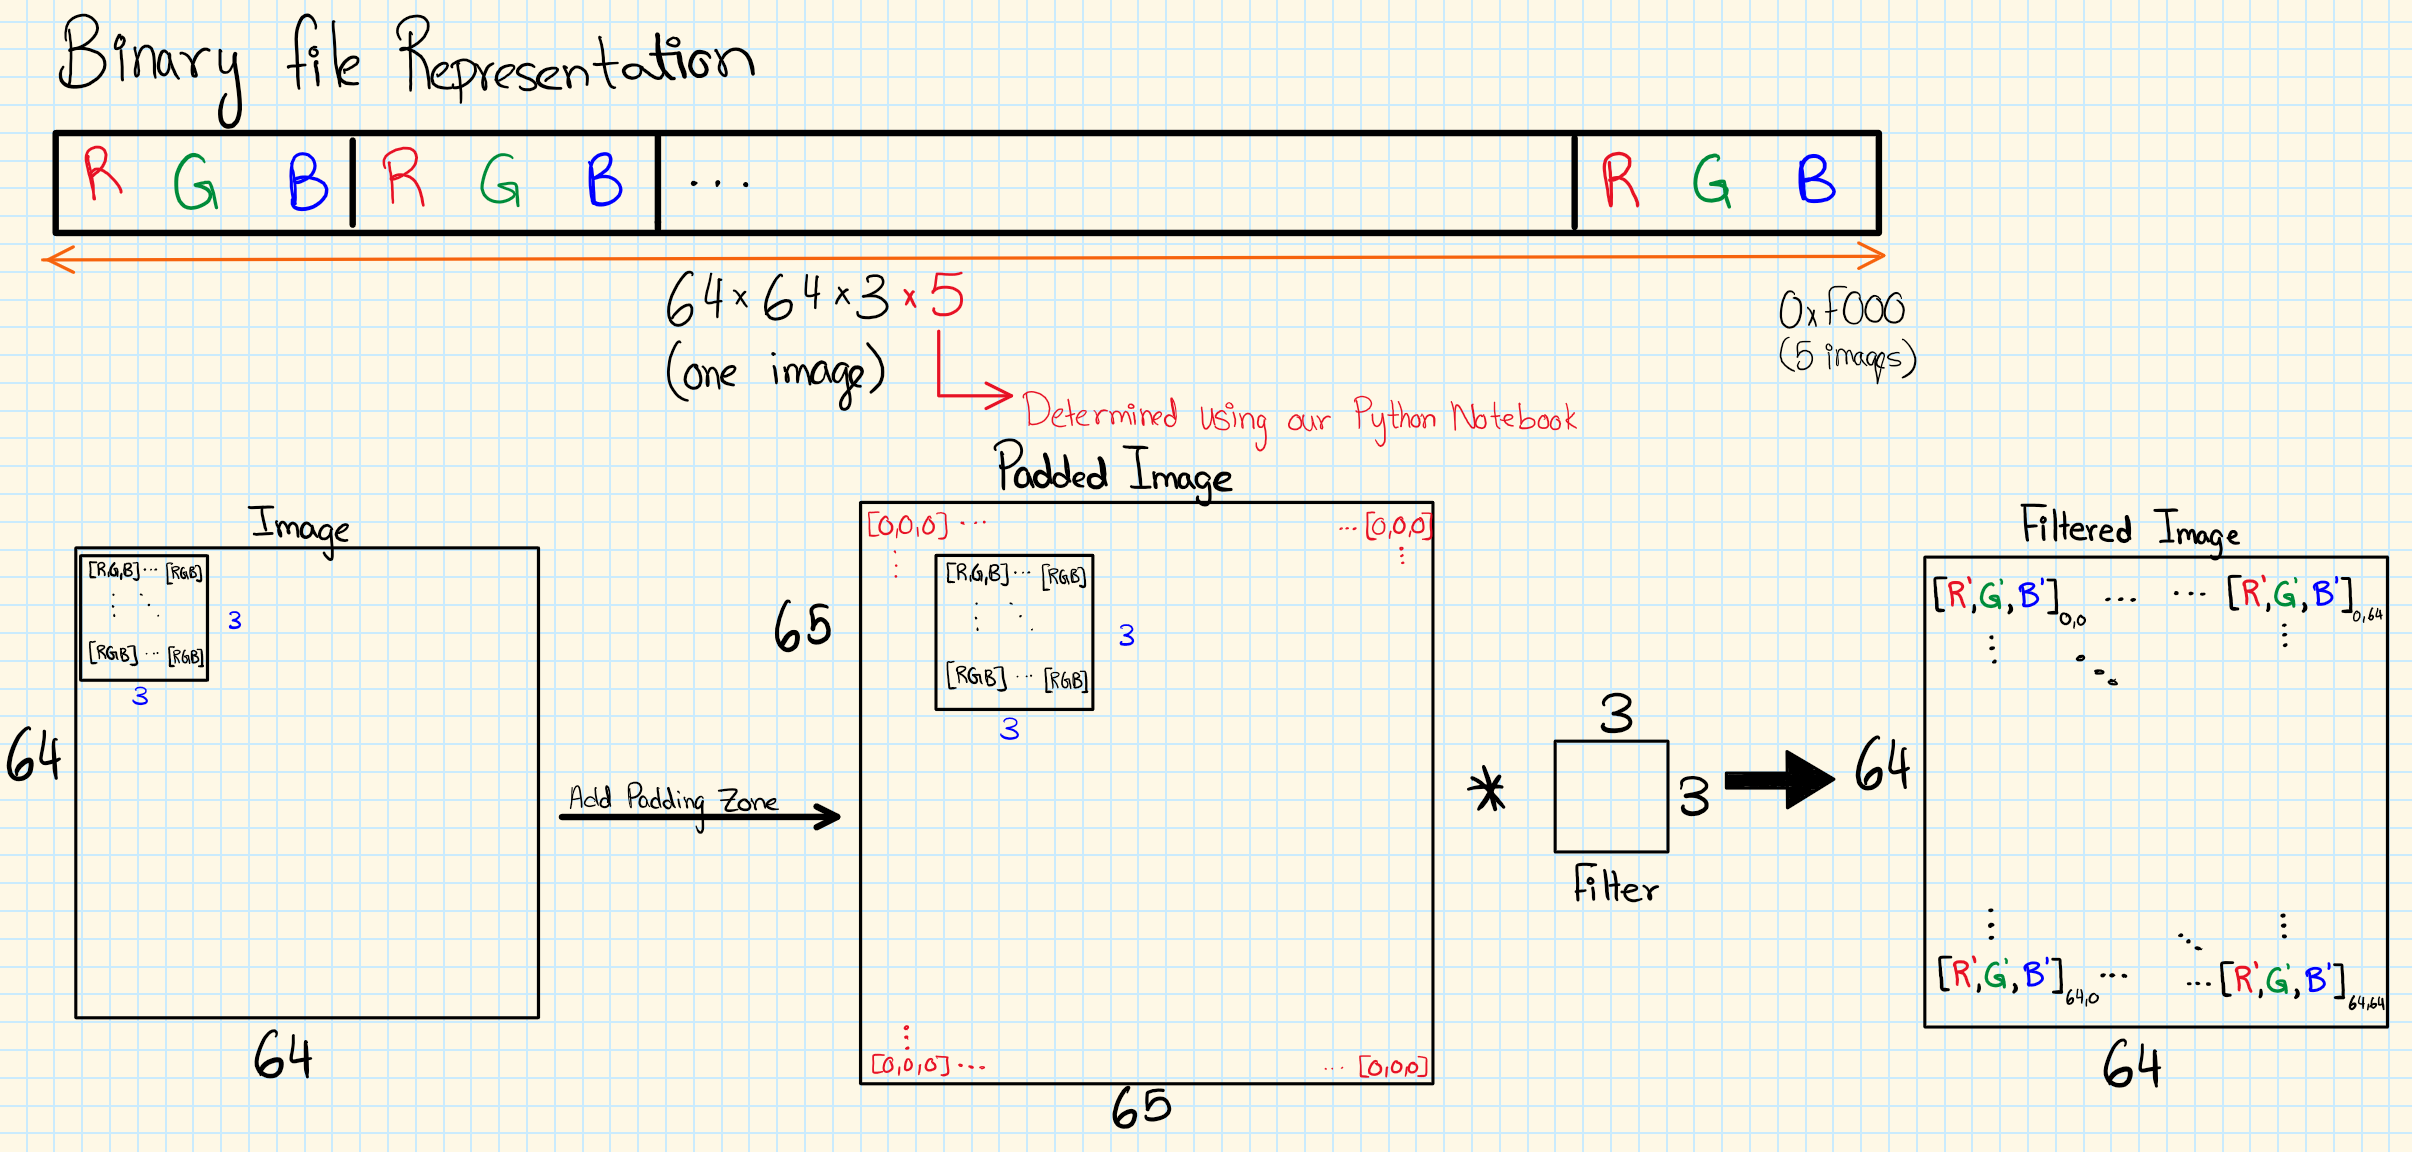 Binary file Representation
R G B R G B ... R G B
64 × 64 × 3 × 5
(one image)
0xF000
(5 images)
Determined using our Python Notebook
Image
[R,G,B] ... [RGB]
[RGB] ... [RGB]
3
3
64
64
Add Padding Zone
Padded Image
[0,0,0] ... ... [0,0,0]
[R,G,B] ... [RGB]
[RGB] ... [RGB]
3
3
65
[0,0,0] ... ... [0,0,0]
65
*
3
3
Filter
Filtered Image
[R',G',B']0,0 ... ... [R',G',B']0,64
64
[R',G',B']64,0 ... ... [R',G',B']64,64
64